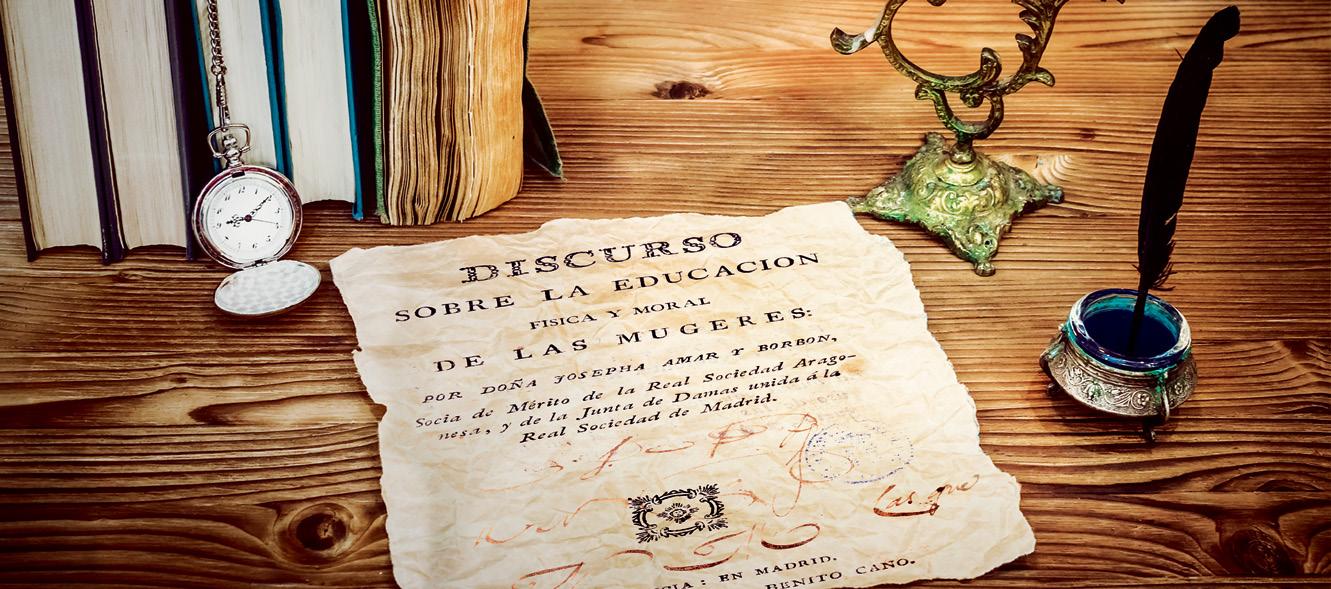 DISCURSO
SOBRE LA EDUCACION
FISICA Y MORAL
DE LAS MUGERES:
POR DOÑA JOSEPHA AMAR Y BORBON,
Socia de Mérito de la Real Sociedad Arago-
nesa, y de la Junta de Damas unida á la
Real Sociedad de Madrid.
CIA: EN MADRID.
BENITO CANO.